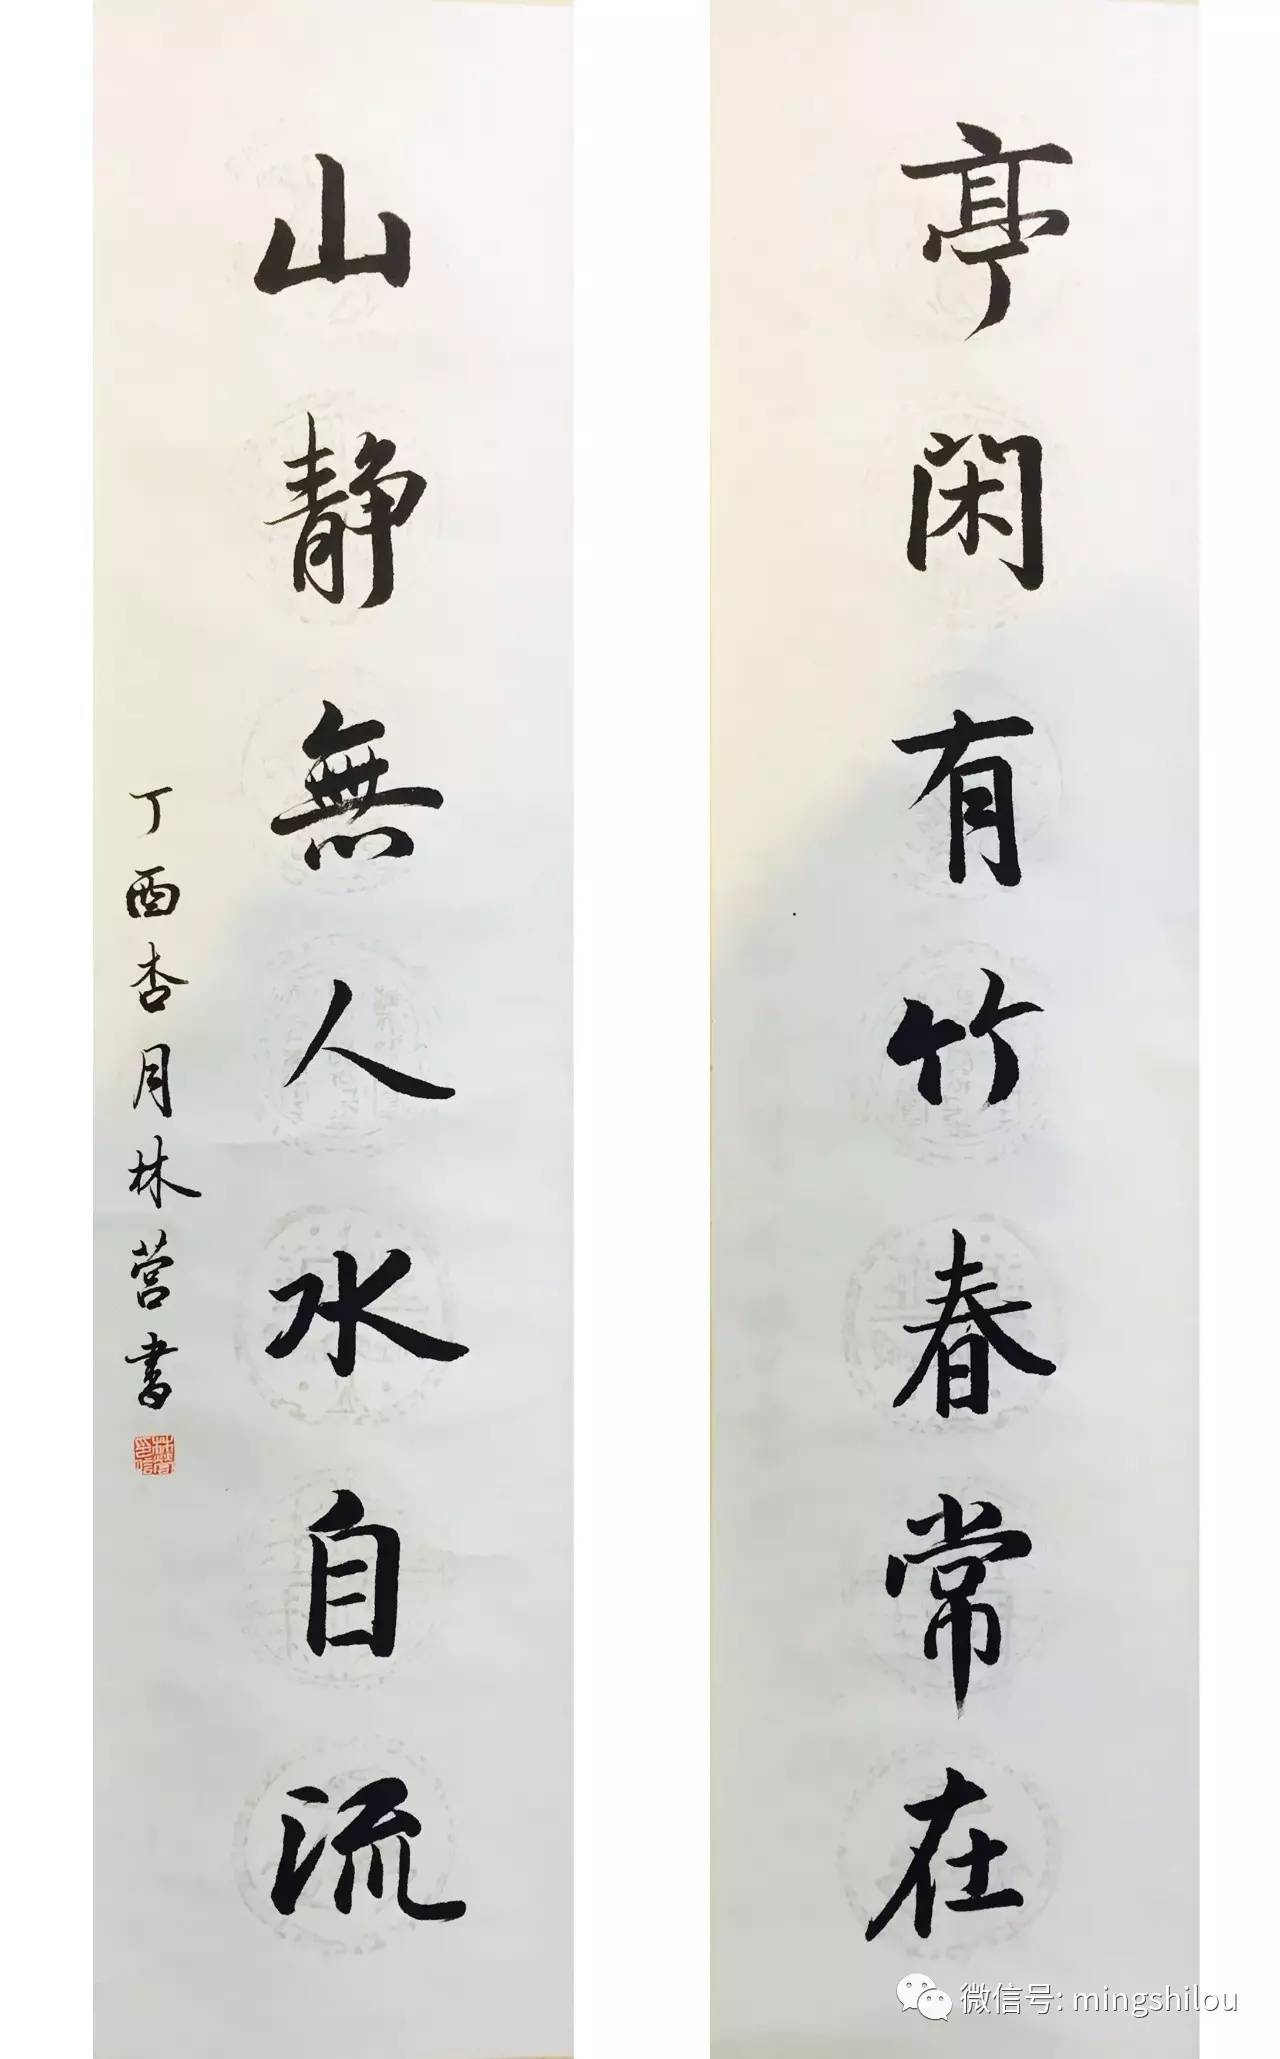 亭闲有竹春常在
山静無人水自流
丁酉杏月林营書
微信号: mingshilou